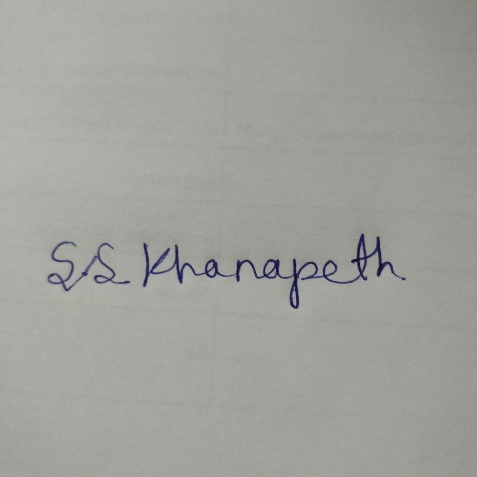 S.S Khanapeth